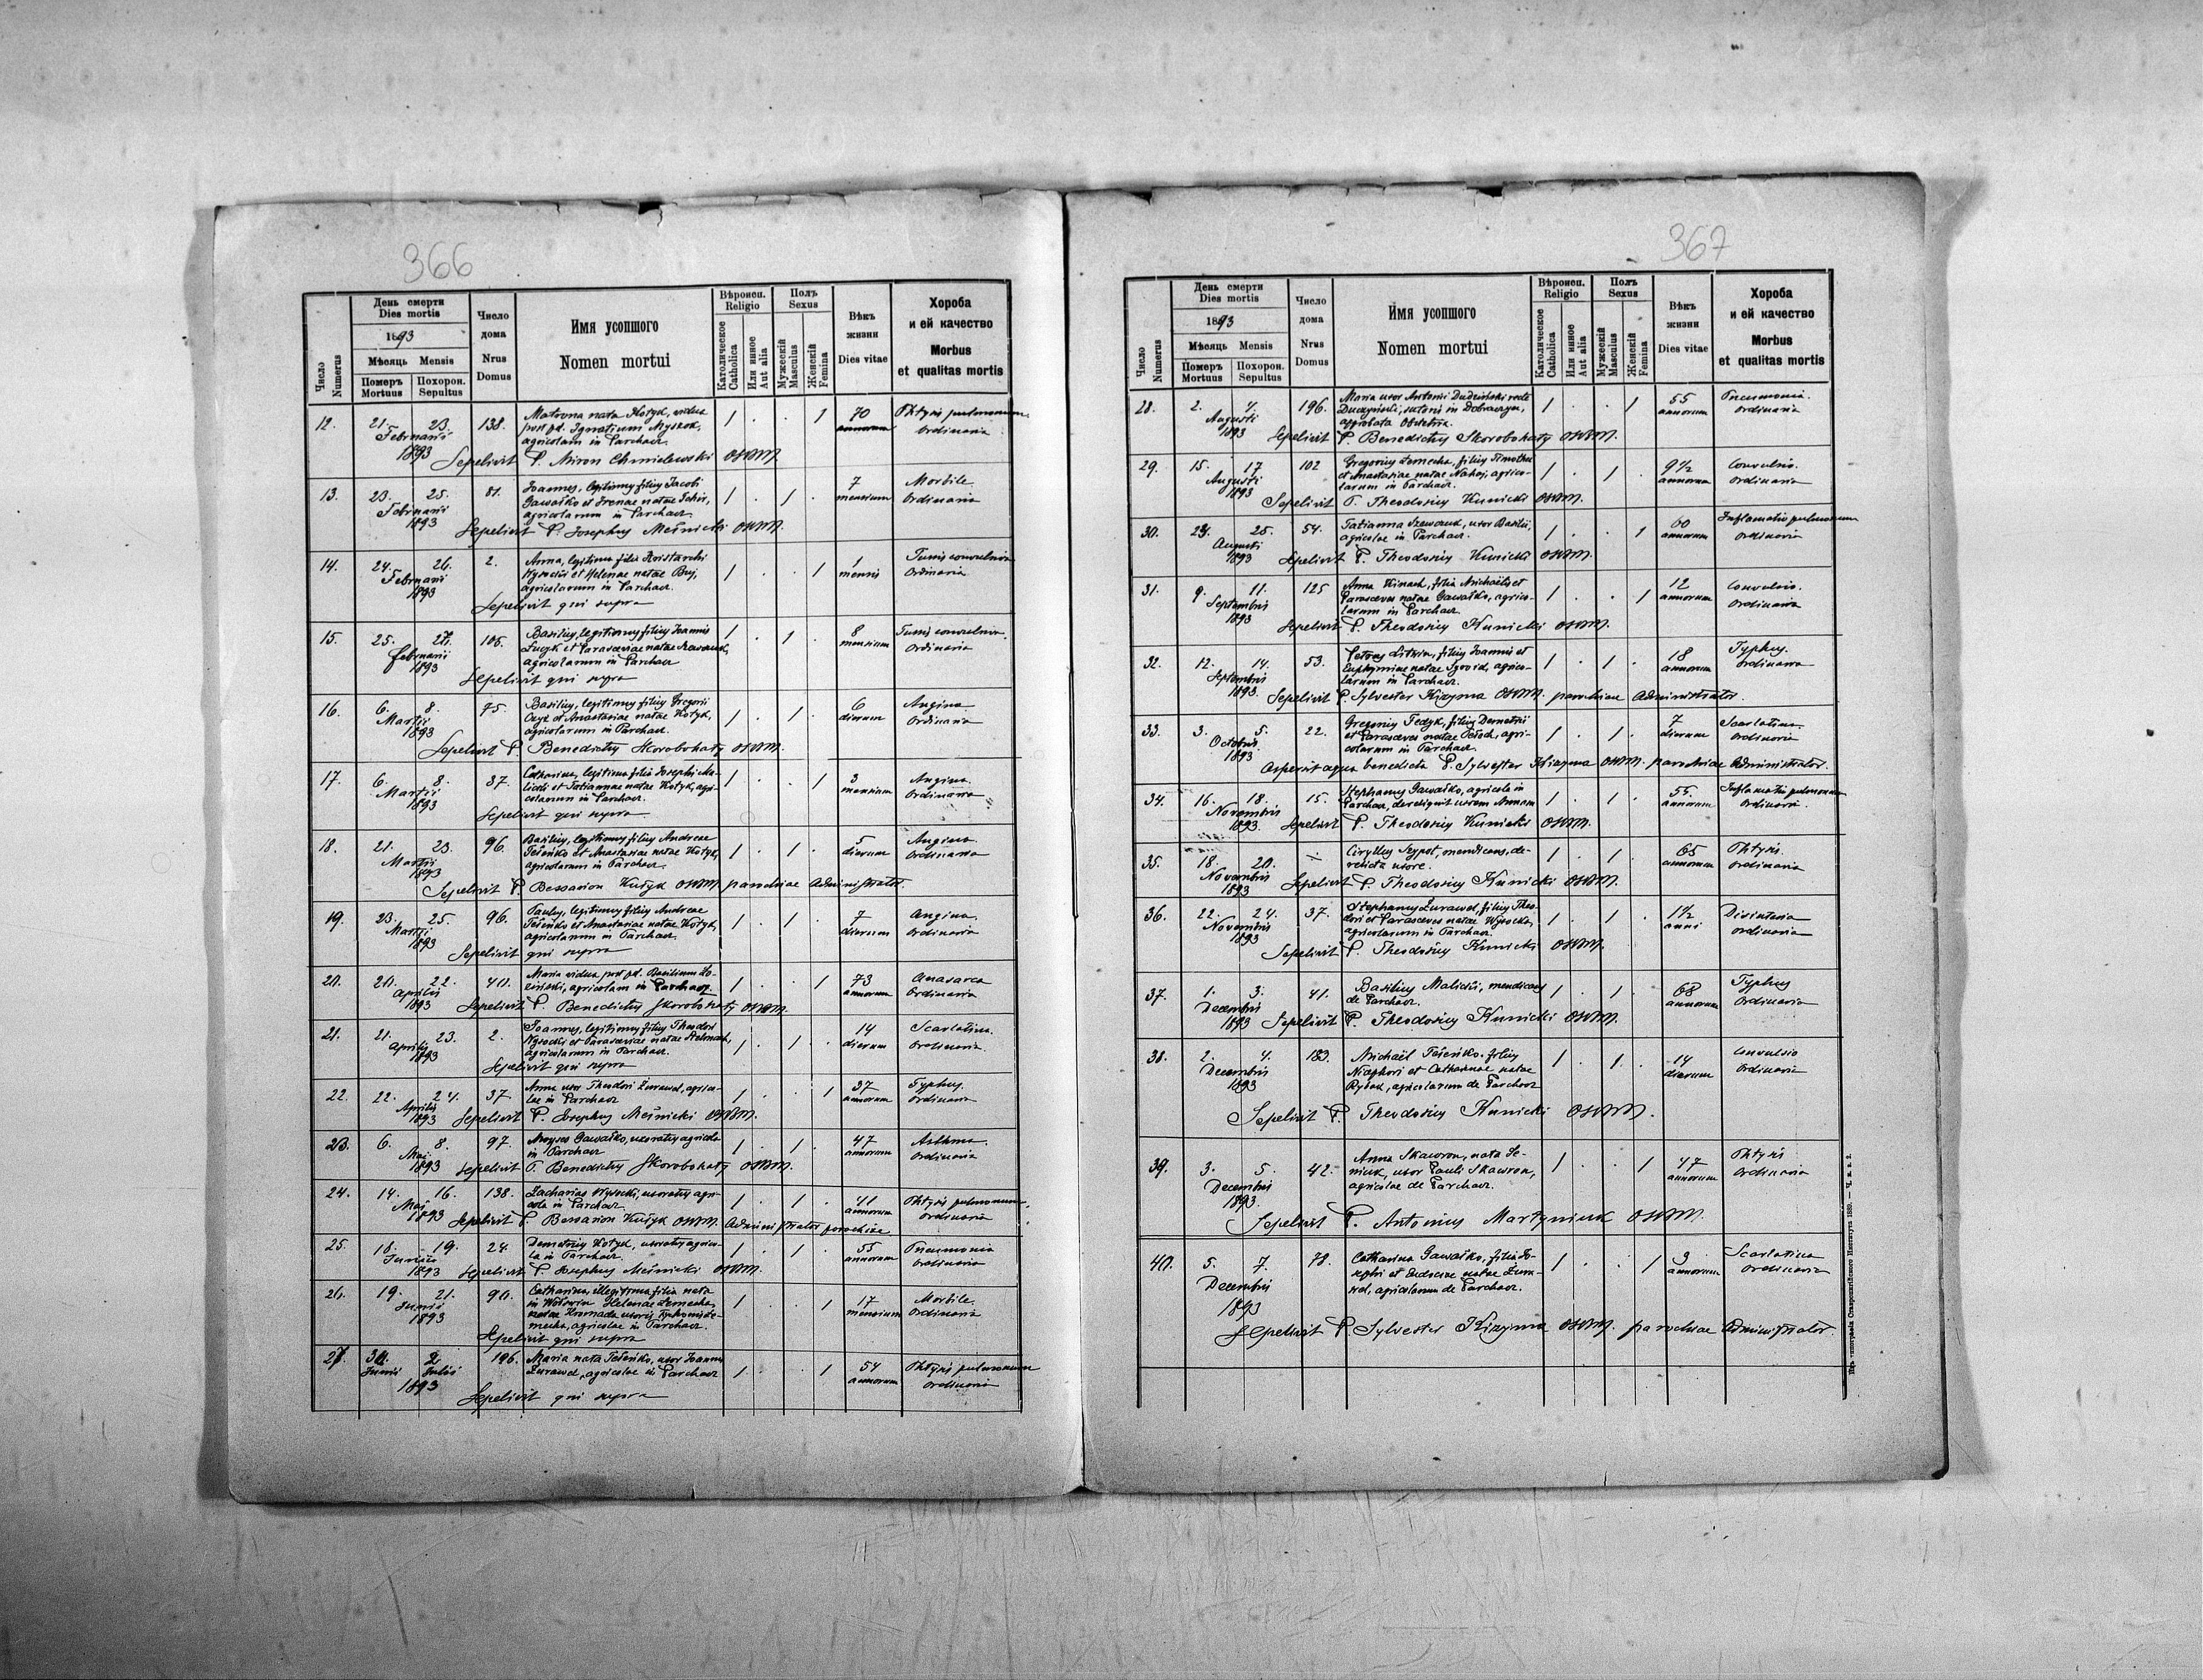 366
Число Numerus
День смерти Dies mortis
1893
Мѣсяць Mensis
Померъ Mortuus
Похорон. Sepultus
Число дома Nrus Domus
Имя усопшого Nomen mortui
Вѣроисп. Religio
Католическое Catholica
Или инное Aut alia
Полъ Sexus
Мужескій Masculus
Женскій Femina
Вѣкъ жизни Dies vitae
Хороба и ей качество Morbus et qualitas mortis
12. 21. 23. Februarii 1893 138. Matrona nata Kotyk, vidua 1 . . 1 70 annorum Phtysis pulmonum ordinaria
post pd. Ignatium Myszok,
agricolam in Parchacz.
Sepelivit P. Miron Chmielewski OSBM.
13. 23. 25. Februarii 1893 81. Joannes, legitimus filius Jacobi 1 . 1 . 7 mensium Morbile ordinaria
Gawałko et Irenae natae
agricolarum in Parchacz.
Sepelivit P. Josephus Meśnicki OSBM.
14. 24. 26. Februarii 1893 2. Anna, legitima filia Aristarchi 1 . . 1 1 mensis Tussis convulsiva ordinaria
Wysocki et Helenae natae Buj,
agricolarum in Parchacz.
Sepelivit qui supra
15. 25. 27. Februarii 1893 105. Basilius, legitimus filius Joannis 1 . 1 . 8 mensium Tussis convulsiva. ordinaria
et Parasceviae natae
agricolarum in Parchacz
Sepelivit qui supra
16. 6. 8. Martii 1893 75. Basilius, legitimus filius Gregorii 1 . 1 . 6 dierum Angina ordinaria
et Anastasiae natae Kotyk,
agricolarum in Parchacz.
Sepelivit P. Benedictus Skorobohaty OSBM.
17. 6. 8. Martii 1893 87. Catharina, legitima filia Josephi Ma- 1 . . 1 3 mensium Angina. ordinaria
licki et Tatiannae natae Kotyk, agri-
colarum in Parchacz.
Sepelivit qui supra
18. 21. 23. Martii 1893 96. Basilius, legitimus filius Andreae 1 . 1 . 5 dierum Angina ordinaria
Feśeńko et Anastasiae natae Kotyk,
agricolarum in Parchacz
Sepelivit P. Bessarion OSBM parochiae Administrator.
19. 23. 25. Martii 1893 96. Paulus, legitimus filius Andreae 1 . 1 . 7 dierum Angina. ordinaria
Feśeńko et Anastasiae natae Kotyk,
agricolarum in Parchacz.
Sepelivit qui supra
20. 20. 22. Aprilis 1893 40. Maria vidua post pd. Basilium 1 . . 1 73 annorum Anasarca ordinaria
agricolam in Parchacz
Sepelivit P. Benedictus Skorobohaty OSBM
21. 21. 23. Aprilis 1893 2. Joannes, legitimus filius Theodori 1 . 1 . 14 dierum Scarlatina. ordinaria
Wysocki et Parasceviae natae Stelmach,
agricolarum in Parchacz.
Sepelivit qui supra
22. 22. 24. Aprilis 1893 37. Anna uxor Theodori Żurawel, agrico- 1 . . 1 37 annorum Typhus. ordinaria
lae in Parchacz
Sepelivit P. Josephus Meśnicki OSBM.
23. 6. 8. Mai 1893 97. Moyses Gawałko, uxoratus agricola 1 . 1 . 47 annorum Asthma. ordinaria
in Parchacz
Sepelivit P. Benedictus Skorobohaty OSBM.
24. 14. 16. Mai 1893 138. Zacharias Wysocki, uxoratus agri- 1 . 1 . 41 annorum Phtysis pulmonum. ordinaria
cola in Parchacz
Sepelivit P. Bessarion OSBM Administrator parochiae
25. 18. 19. Junii 1893 24. Demetrius Kotyk, uxoratus agrico- 1 . 1 . 55 annorum Pneumonia ordinaria
la in Parchacz
Sepelivit P. Josephus Meśnicki OSBM.
26. 19. 21. Junii 1893 90. Catharina, illegitima filia nata 1 . . 1 17 mensium Morbile ordinaria
in Helenae
natae Hromada uxoris
agricolae in Parchacz.
Sepelivit qui supra
27. 30. Junii 2 Julii 1893 196. Maria nata Feśeńko, uxor Joannis 1 . 1 54 annorum Phtysis pulmonum ordinaria
Żurawel, agricolae in Parchacz
Sepelivit qui supra
367
Число Numerus
День смерти Dies mortis
1893
Мѣсяць Mensis
Померъ Mortuus
Похорон. Sepultus
Число дома Nrus Domus
Имя усопшого Nomen mortui
Вѣроисп. Religio
Католическое Catholica
Или инное Aut alia
Полъ Sexus
Мужескій Masculus
Женскій Femina
Вѣкъ жизни Dies vitae
Хороба и ей качество Morbus et qualitas mortis
28. 2. 4. Augusti 1893 196. Maria uxor Antonii Dudziński recte 1 . . 1 55 annorum Pneumonia. ordinaria
Duczyński, sutoris in Dobraczyn,
approbata Obstetrix.
Sepelivit P. Benedictus Skorobohaty OSBM.
29. 15. 17 Augusti 1893 102 Gregorius filius Timothei 1 . 1 . 9½ annorum Convulsio. ordinaria
et Anastasiae natae agrico-
larum in Parchacz.
Sepelivit P. Theodosius Kunicki OSBM.
30. 23. 25. Augusti 1893 54. Tatianna Szewczuk, uxor Basilii, 1 . . 1 60 annorum Inflamatio pulmonum ordinaria
agricolae in Parchacz.
Sepelivit P. Theodosius Kunicki OSBM.
31. 9. 11. Septembris 1893 125 Anna Kinach, filia Michaelis et 1 . . 1 12 annorum Convulsio. ordinaria
Parasceves natae Gawałko, agrico-
larum in Parchacz.
Sepelivit P. Theodosius Kunicki OSBM.
32. 12. 14. Septembris 1893. 53. Petrus Litwin, filius Joannis et 1 . 1 . 18 annorum Typhus. ordinaria
Euphymiae natae agrico-
larum in Parchacz.
Sepelivit P. Sylvester Kizyma OSBM. parochiae Administrator.
33. 3. 5. Octobris 1893 22. Gregorius Fedyk, filius Demetrii 1 . 1 . 7 dierum Scarlatina. ordinaria
et Parasceves natae agri-
colarum in Parchacz.
Aspersit aqua benedicta P. Sylvester Kizyma OSBM. parochiae Administrator.
34. 16. 18. Novembris 1893. 15. Stephanus Gawałko, agricola in 1 . 1 . 55. annorum Inflamatio pulmonum ordinaria.
Parchacz, dereliquit uxorem Annam
Sepelivit P. Theodosius Kunicki OSBM.
35. 18. 20. Novembris 1893 Ciryllus mendicans, de- 1 . 1 . 65 annorum Phtysis ordinaria
relicta uxore.
Sepelivit P. Theodosius Kunicki OSBM.
36. 22. 24. Novembris 1893 37. Stephanus Żurawel, filius Theo- 1 . 1 . 1½ anni Disintaria ordinaria
dori et Parasceves natae Wysocka,
agricolarum in Parchacz.
Sepelivit P. Theodosius Kunicki OSBM.
37. 1. 3. Decembris 1893 41. Basilius Malicki, mendicans 1 . 1 . 68 annorum Typhus ordinaria
de Parchacz.
Sepelivit P. Theodosius Kunicki OSBM.
38. 2. 4. Decembris 1893 183. Michaël Feśeńko, filius 1 . 1 . 14 dierum Convulsio ordinaria
Nicephori et Catharinae natae
agricolarum de Parchacz
Sepelivit P. Theodosius Kunicki OSBM.
39. 3. 5. Decembris 1893. 42. Anna Skawron, nata Se- 1 . . 1 47 annorum Phtysis ordinaria
niuk, uxor Pauli Skawron,
agricolae de Parchacz.
Sepelivit P. Antonius Martyniuk OSBM.
40. 5. 7. Decembris 1893 78. Catharina Gawałko, filia Jo- 1 . . 1 3 annorum Scarlatina ordinaria
sephi et Eudociae natae Żura-
wel, agricolarum de Parchacz.
Sepelivit P. Sylvester Kizyma OSBM. parochiae Administrator.
Изъ типографіи Ставропигійского Института 1889.